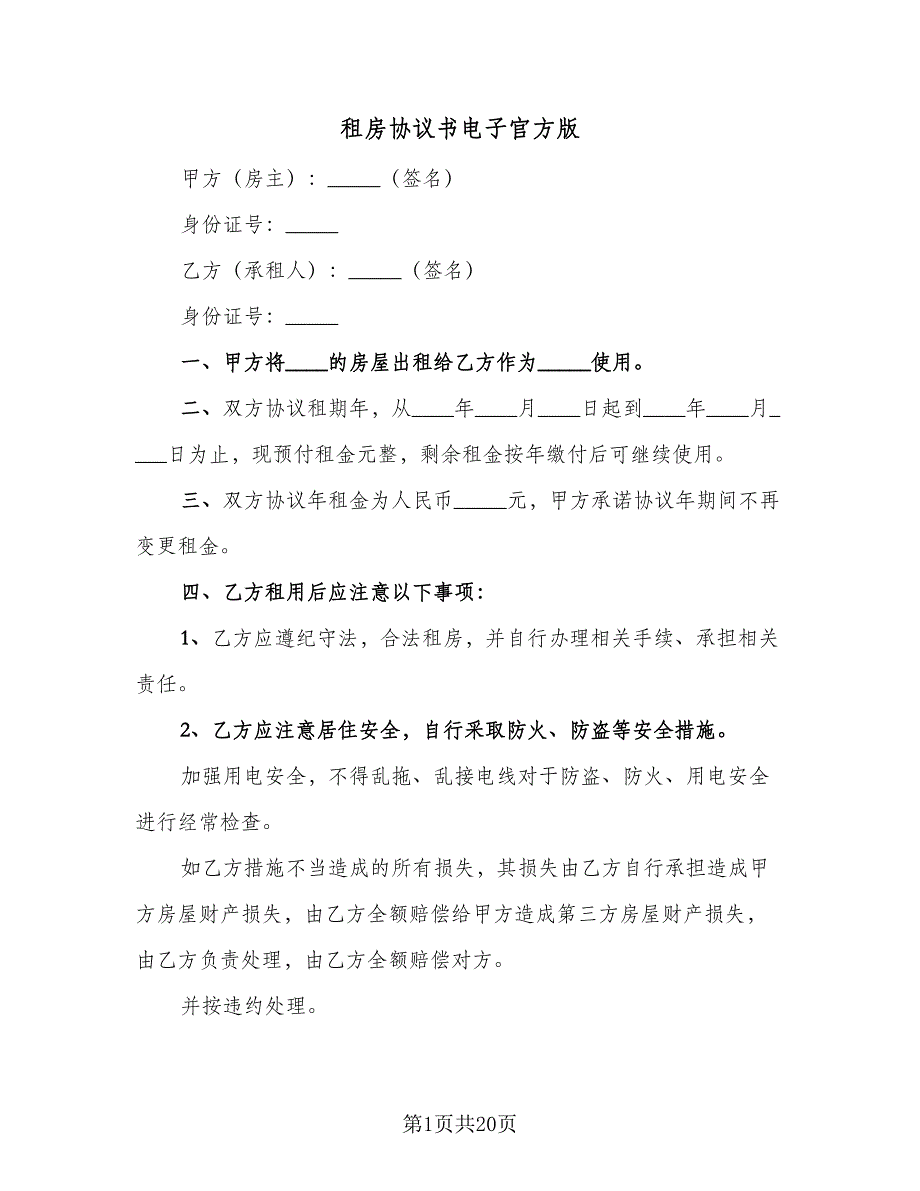 租房协议书电子官方版
甲方（房主）：_____（签名）
身份证号：_____
乙方（承租人）：_____（签名）
身份证号：_____
一、甲方将____的房屋出租给乙方作为_____使用。
二、双方协议租期年，从____年____月____日起到____年____月_
___日为止，现预付租金元整，剩余租金按年缴付后可继续使用。
三、双方协议年租金为人民币_____元，甲方承诺协议年期间不再
变更租金。
四、乙方租用后应注意以下事项：
1、乙方应遵纪守法，合法租房，并自行办理相关手续、承担相关
责任。
2、乙方应注意居住安全，自行采取防火、防盗等安全措施。
加强用电安全，不得乱拖、乱接电线对于防盗、防火、用电安全
进行经常检查。
如乙方措施不当造成的所有损失，其损失由乙方自行承担造成甲
方房屋财产损失，由乙方全额赔偿给甲方造成第三方房屋财产损失，
由乙方负责处理，由乙方全额赔偿对方。
并按违约处理。
第1页共20页